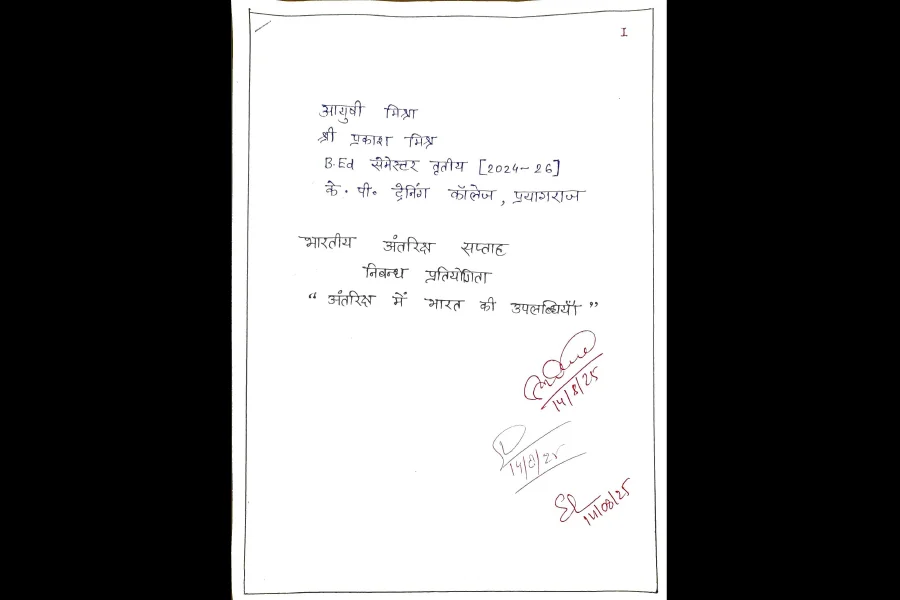 I
आयुषी मिश्रा
श्री प्रकाश मिश्र
B.Ed सेमेस्टर तृतीय [2024-26]
के. पी. ट्रेनिंग कॉलेज, प्रयागराज
भारतीय अंतरिक्ष सप्ताह
निबन्ध प्रतियोगिता
“ अंतरिक्ष में भारत की उपलब्धियाँ ”
14/8/25
14/8/25
14/08/25